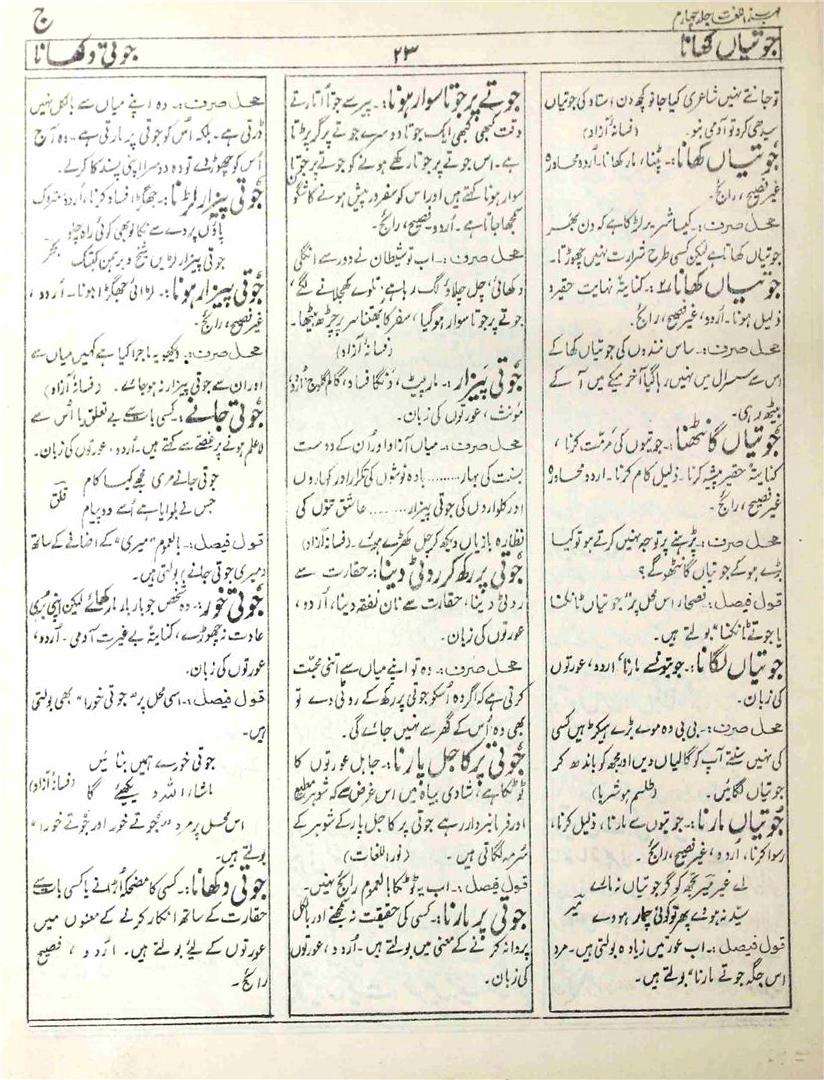 مہذب اللغات جلد چہارم
ج
جوتیاں کھانا
۲۳
جوتی دکھانا
تو جانتے نہیں شاعری کیا جانو کچھ دن استاد کی جوتیاں
سیدھی کرو تو آدمی ہو۔ (فسانۂ آزاد)
جوتیاں کھانا:۔ پٹنا، مار کھانا۔ اردو محاورہ
غیر فصیح، رائج۔
محل صرف:۔ کیا شریر لڑکا ہے کہ دن بھر
جوتیاں کھاتا ہے لیکن کسی طرح شرارت نہیں چھوڑتا۔
جوتیاں کھانا ۲:۔ کنایۃً نہایت حقیر و
ذلیل ہونا۔ اردو، غیر فصیح، رائج۔
محل صرف:۔ ساس نندوں کی جوتیاں کھا کے
اس سے سسرال میں نہیں رہا گیا آخر میکے میں آ کے
بیٹھ رہی۔
جوتیاں گانٹھنا:۔ جوتیوں کی مرمت کرنا،
کنایۃً حقیر پیشہ کرنا۔ ذلیل کام کرنا۔ اردو محاورہ
غیر فصیح، رائج۔
محل صرف:۔ پڑھنے پر توجہ نہیں کرتے ہو تو کیا
بڑے ہو کے جوتیاں گانٹھو گے؟
قول فیصل:۔ فصحا، اس محل پر "جوتیاں ٹانکنا
یا جوتے ٹانکنا" بولتے ہیں۔
جوتیاں لگانا:۔ جوتیوں سے مارنا، اردو، عورتوں
کی زبان۔
محل صرف:۔ بی بی وہ موے بڑے ہیکڑ ہیں کسی
کی نہیں سنتے آپ کو گالیاں دیں اور مجھ کو باندھ کر
جوتیاں لگائیں۔ (طلسم ہوشربا)
جوتیاں مارنا:۔ جوتیوں سے مارنا، ذلیل کرنا،
رسوا کرنا، اردو، غیر فصیح، رائج۔
اے غیر میر تجھ کو گر جوتیاں نہ مارے
سید نہ ہووے پھر تو کوئی چمار ہووے میر
قول فیصل:۔ اب عورتیں زیادہ بولتی ہیں۔ مرد
اس جگہ جوتے مارنا" بولتے ہیں۔
جوتے پر جوتا سوار ہونا:۔ پیر سے جوتا اتارتے
وقت کبھی کبھی ایک جوتا دوسرے جوتے پر گر پڑتا
ہے۔ اس جوتے پر جوتا رکھے ہونے کو جوتے پر جوتا
سوار ہونا کہتے ہیں اور اس کو سفر درپیش ہونے کا شگون
سمجھا جاتا ہے۔ اردو فصیح، رائج۔
محل صرف:۔ اب تو شیطان نے دور سے انگلی
دکھائی، چل چلاؤ لگ رہا ہے، تلوے کھجلانے لگے،
جوتے پر جوتا سوار ہو گیا، سفر کا بھتنا سر پر چڑھ بیٹھا۔
(فسانۂ آزاد)
جوتی پیزار:۔ مار پیٹ، دنگا فساد، گالم گلوچ، اردو
مونث، عورتوں کی زبان۔
محل صرف:۔ میاں آزاد اور ان کے دوست
بسنت کی بہار......... بادہ نوشوں کی تکرار اور کہاروں
اور کلواروں کی جوتی پیزار...... عاشق تنوں کی
نظارہ بازیاں دیکھ کر چل کھڑے ہوئے۔ (فسانۂ آزاد)
جوتی پر رکھ کر روٹی دینا:۔ حقارت سے
روٹی دینا، حقارت سے نان نفقہ دینا، اردو،
عورتوں کی زبان۔
محل صرف:۔ وہ تو اپنے میاں سے اتنی محبت
کرتی ہے کہ اگر وہ اسکو جوتی پر رکھ کے روٹی دے تو
بھی وہ اُس کے گھر سے نہیں جائے گی۔
جوتی پر کاجل پارنا:۔ جاہل عورتوں کا
ٹوٹکا ہے، شادی بیاہ میں اس غرض سے کہ شوہر مطیع
اور فرمانبردار رہے جوتی پر کاجل پار کے شوہر کے
سُرمہ لگاتی ہیں۔ (نور اللغات)
قول فیصل:۔ اب یہ ٹوٹکا بالعموم رائج نہیں۔
جوتی پر مارنا:۔ کسی کی حقیقت نہ سمجھنے اور بالکل
پروا نہ کرنے کے معنی میں بولتے ہیں۔ اردو، عورتوں
کی زبان۔
محل صرف:۔ وہ اپنے میاں سے بالکل نہیں
ڈرتی ہے۔ بلکہ اُس کو جوتی پر مارتی ہے۔ وہ آج
اُس کو چھوڑ دے تو وہ دوسرا اپنی پسند کا کر لے۔
جوتی پیزار لڑنا:۔ جھگڑا، فساد کرنا، اردو، متروک
پاؤں پردے سے نکا تو بھی کوئی راہ چلو
جوتی پیزار لڑیں شیخ و برہمن کب تک بحر
جوتی پیزار ہونا:۔ لڑائی جھگڑا ہونا۔ اردو،
غیر فصیح، رائج۔
محل صرف:۔ دیکھو یہ ماجرا کیا ہے کہیں میاں سے
اور ان سے جوتی پیزار نہ ہو جائے۔ (فسانۂ آزاد)
جوتی جانے:۔ کسی بات سے بے تعلق یا اُس سے
لاعلم ہونے پر غصے سے کہتے ہیں۔ اردو، عورتوں کی زبان۔
جوتی جانے مری مجھے کیسا کام
جس نے بلوایا ہے اُسے دو پیام قلق
قول فیصل:۔ بالعموم "میری" کے اضافے کے ساتھ
(میری جوتی جانے) بولتی ہیں۔
جوتی خور:۔ وہ شخص جو بار بار مار کھائے لیکن اپنی بُری
عادت نہ چھوڑے، کنایۃً بے غیرت آدمی۔ اردو،
عورتوں کی زبان۔
قول فیصل:۔ اسی محل پر "جوتی خورا" بھی بولتی
ہیں۔
جوتی خورے ہمیں بنائیں
ماشاء اللہ دیکھئے گا (فسانۂ آزاد)
اس محل پر مرد "جوتے خور اور جوتے خورا"
بولتے ہیں۔
جوتی دکھانا:۔ کسی کا مضحکہ اُڑانے یا کسی بات سے
حقارت کے ساتھ انکار کرنے کے معنوں میں
عورتوں کے لئے بولتے ہیں۔ اردو، فصیح
رائج۔